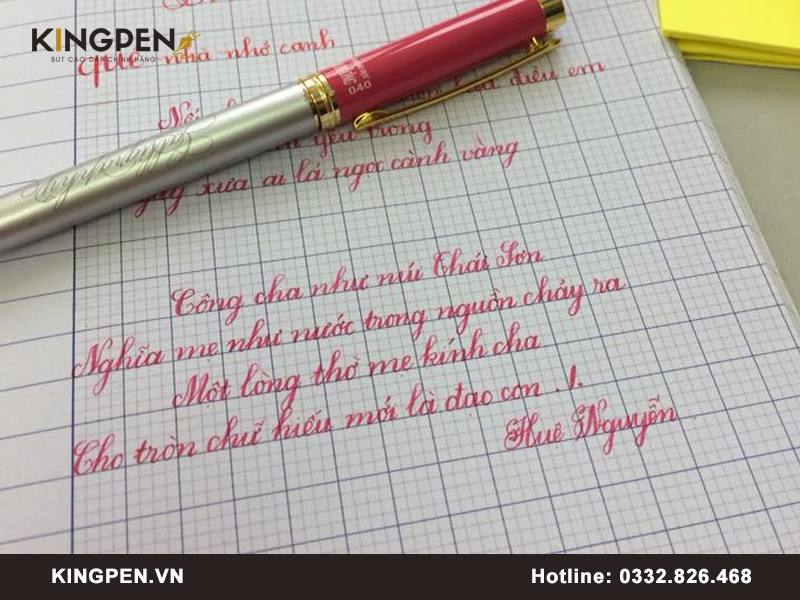 KINGPEN
BÚT CAO CẤP CHÍNH HÃNG
quê nhà nhớ canh
điều em
yêu trong
xưa ai lá ngọc cành vàng
040
Công cha như núi Thái Sơn
Nghĩa mẹ như nước trong nguồn chảy ra
Một lòng thờ mẹ kính cha
Cho tròn chữ hiếu mới là đạo con ./.
Huệ Nguyễn
KINGPEN.VN
Hotline: 0332.826.468